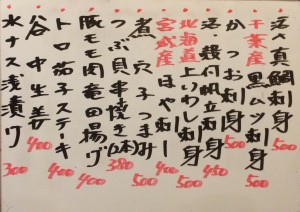 活〆真鯛刺身 500
千葉産黒ムツ刺身 500
かつお刺身 500
活・殻付帆立刺身 450
北海道上いわし刺身 500
宮城産ほや刺 400
煮穴子つまみ 500
つぶ貝串焼き(2本) 380
豚モモ肉竜田揚げ 400
トロ茄子ステーキ 400
谷中生姜 400
水ナス浅漬け 300